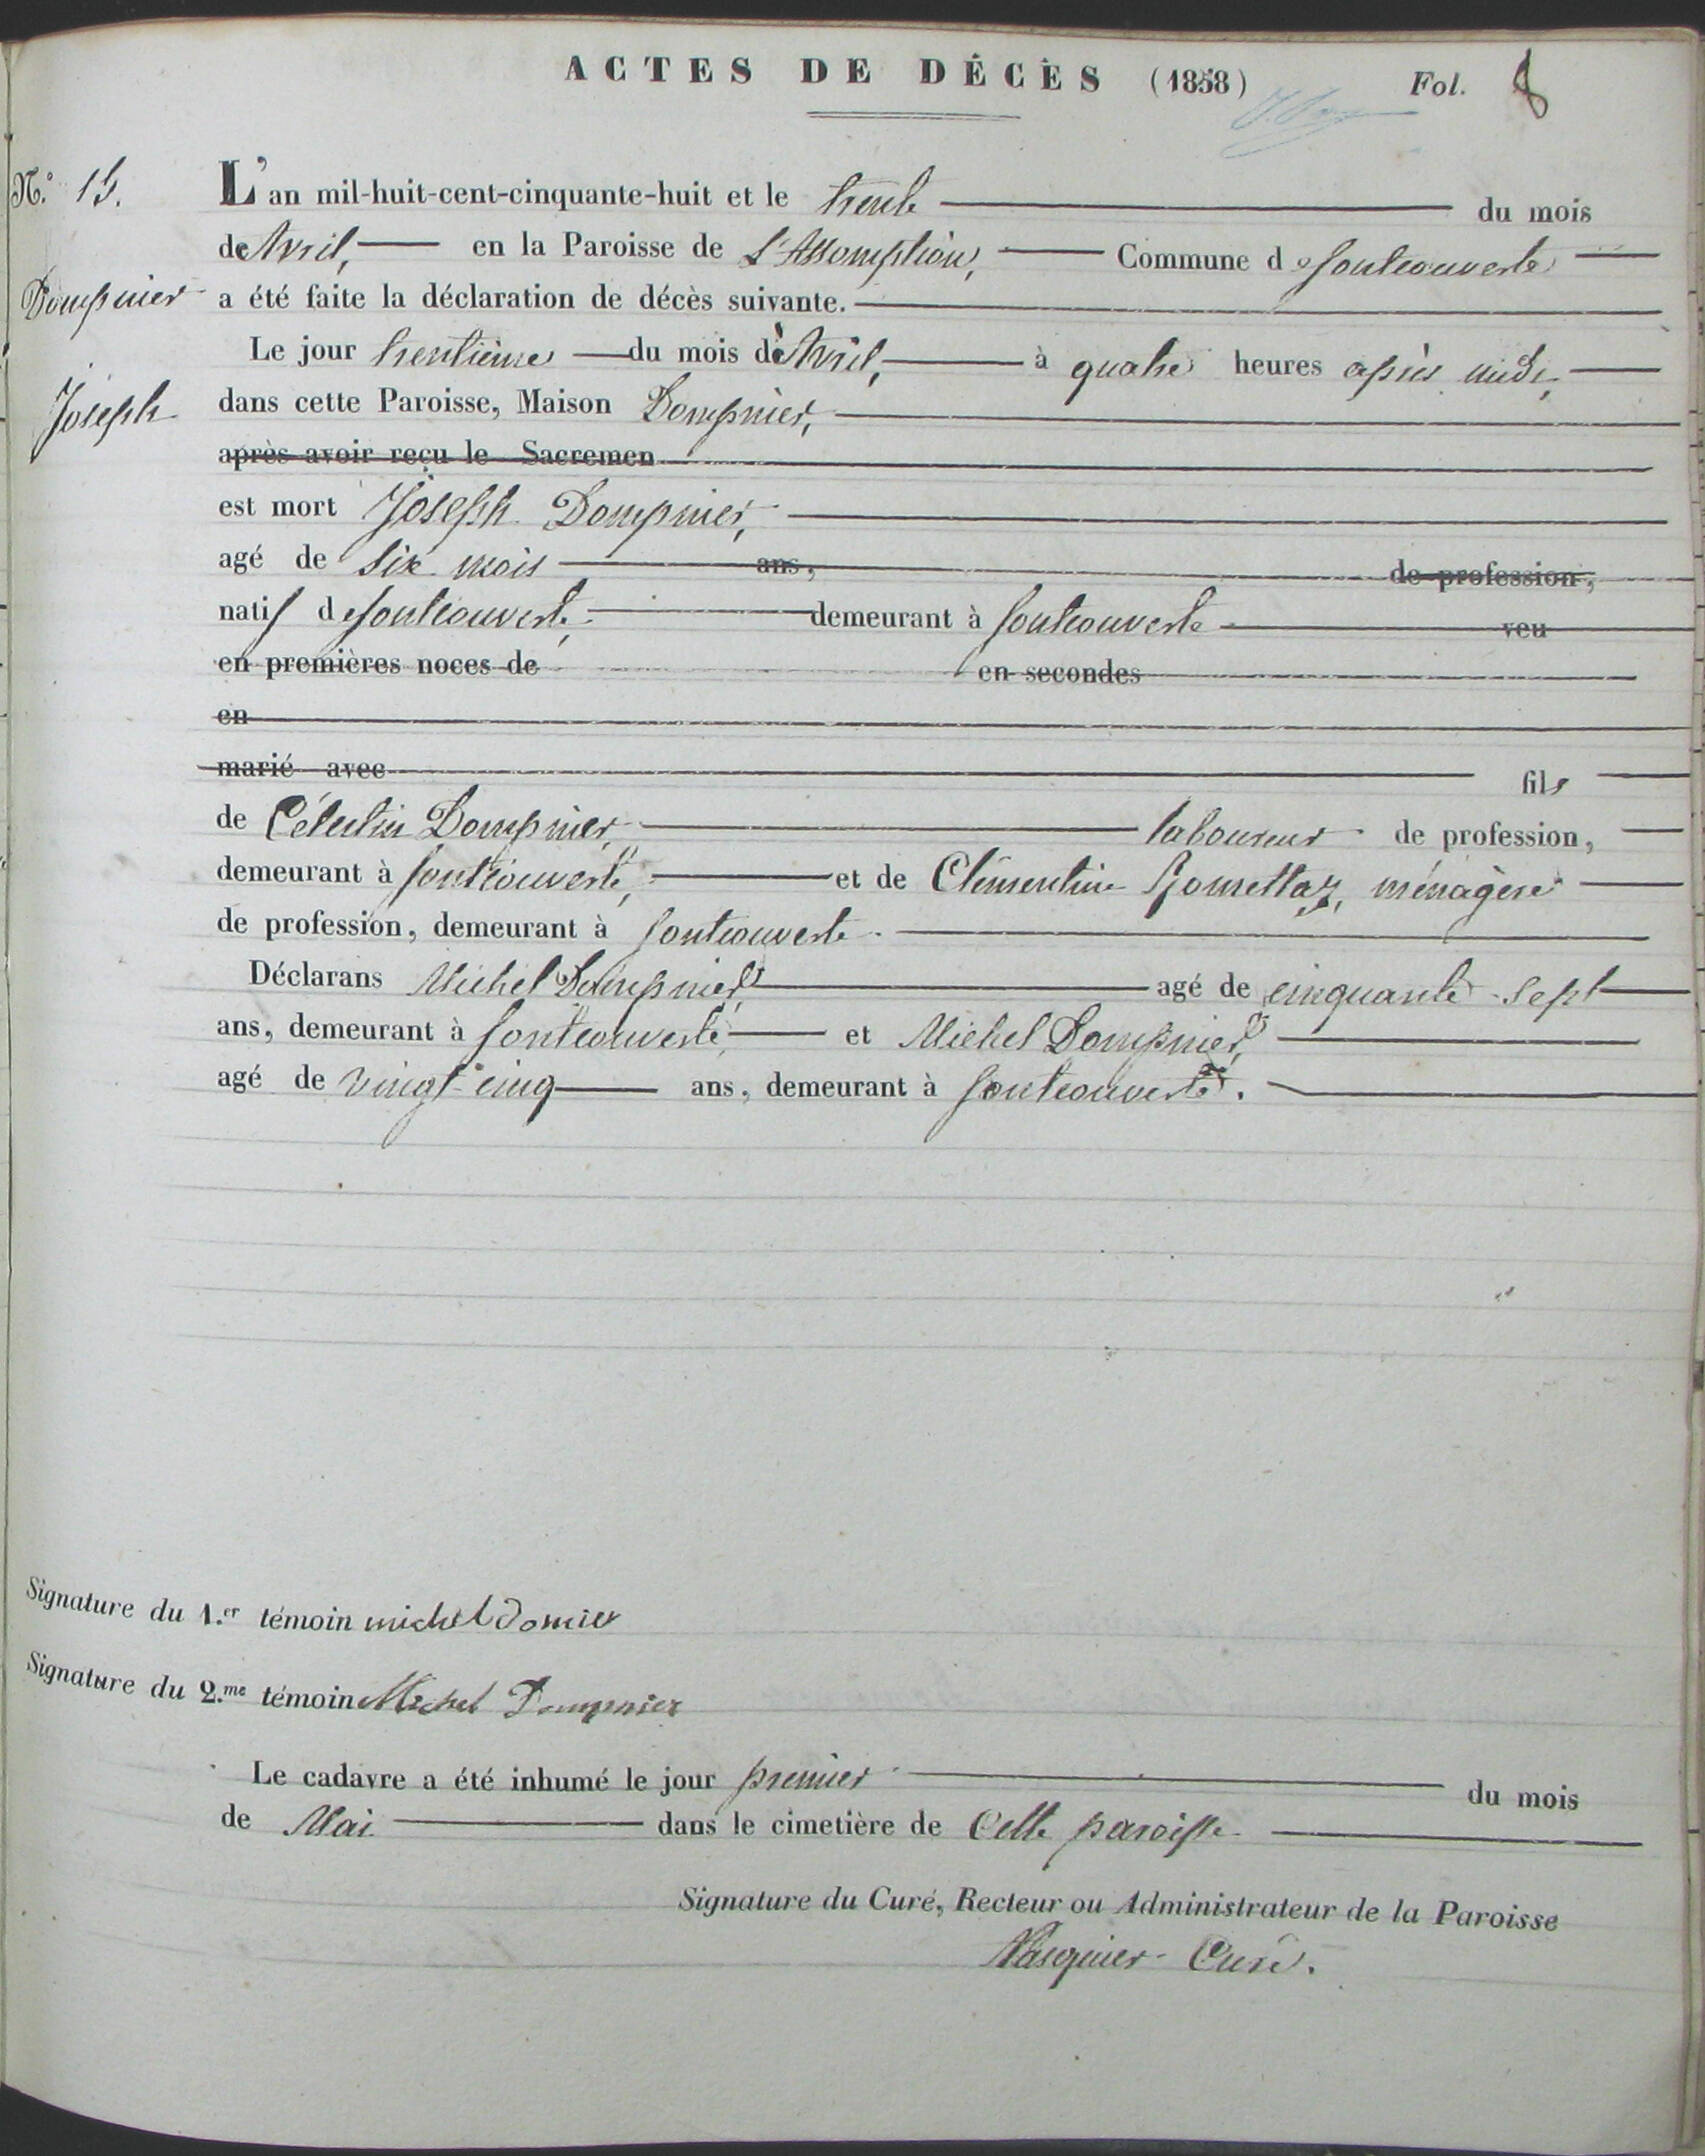 ACTES DE DÉCÈS (1858) Fol. 8
N.° 15.
L'an mil-huit-cent-cinquante-huit et le trente du mois
de Avril, en la Paroisse de L'Assomption, Commune de fontcouverte
Dompnier
a été faite la déclaration de décès suivante.
Le jour trentième du mois de Avril, à quatre heures après midi,
Joseph
dans cette Paroisse, Maison Dompnier,
après avoir reçu le Sacremen
est mort Joseph Dompnier,
agé de six mois ans, de profession,
natif de fontcouverte, demeurant à fontcouverte veu
en premières noces de en secondes
en
marié avec fils
de Célestin Dompnier, laboureur de profession,
demeurant à fontcouverte, et de Clémentine ménagère
de profession, demeurant à fontcouverte.
Déclarans Michel Dompnier, agé de cinquante-sept
ans, demeurant à fontcouverte, et Michel Dompnier,
agé de vingt-cinq ans, demeurant à fontcouverte.
Signature du 1.er témoin michel domier
Signature du 2.me témoin Michel Dompnier
Le cadavre a été inhumé le jour premier du mois
de Mai dans le cimetière de Cette paroisse
Signature du Curé, Recteur ou Administrateur de la Paroisse
Curé.